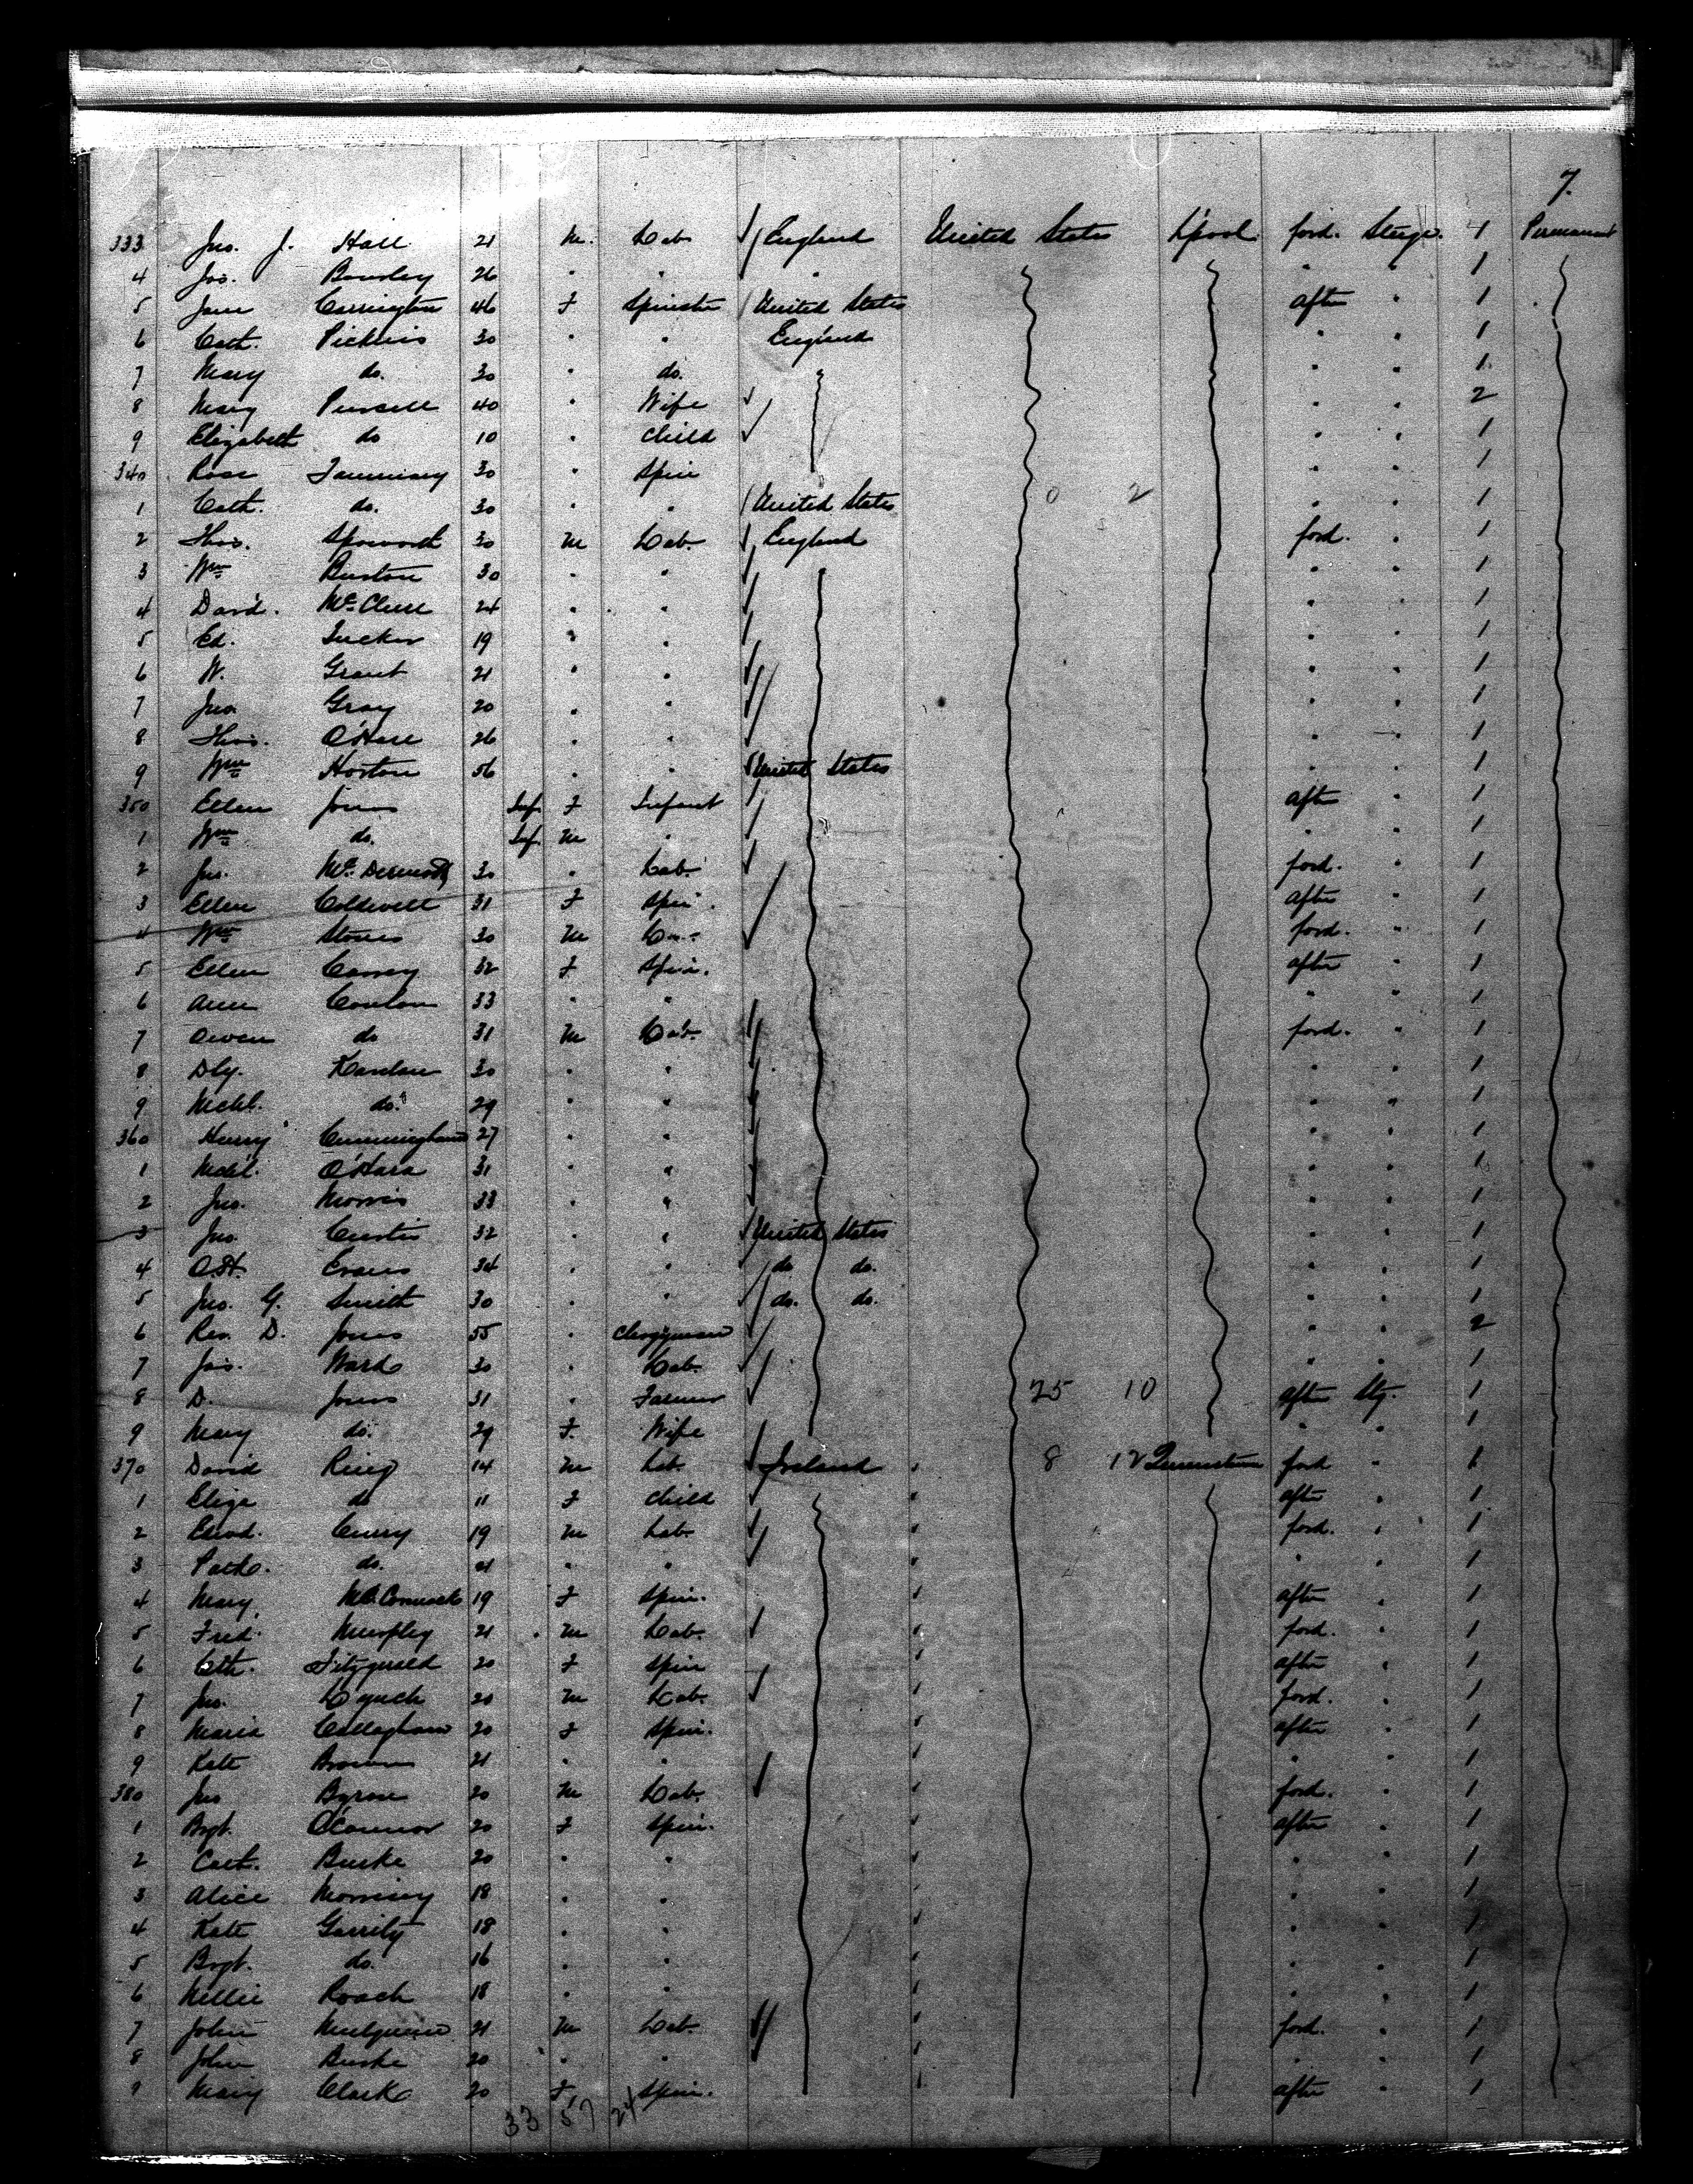 7.
333 Jno. J. Hall 21 M. Lab. England United States L'pool ford. Steege. 1 Permanent
4 Jos. Bowley 26 " " " " " 1
5 Jane Carrington 46 F Spinster United States after " 1
6 Cath. 30 " " England " " 1
7 Mary do. 30 " do. " " 1
8 Mary Pursell 40 " Wife " " 2
9 Elizabeth do 10 " Child " " 1
340 Rose 30 " Spin " " 1
1 Cath. do. 30 " " United States 0 2 " " 1
2 Thos. 30 M Lab. England ford. " 1
3 Wm Burton 30 " " " " 1
4 David. McClure 24 " " " " 1
5 Ed. Tucker 19 " " " " 1
6 W. Grant 21 " " " " 1
7 Jno. Gray 20 " " " " 1
8 Thos. O'Hare 26 " " " " 1
9 Wm Horton 56 " " United States " " 1
350 Ellen Jones Inf. F Infant after " 1
1 Wm do. Inf. M " " " 1
2 Jno. McDermott 30 " Lab. ford. " 1
3 Ellen Coldwell 31 F Spin. after " 1
4 Wm Stones 30 M Lab. ford. " 1
5 Ellen Carney 32 F Spin. after " 1
6 Ann Conlon 33 " " " " 1
7 Owen do 31 M Lab. ford. " 1
8 30 " " " " 1
9 Michl. do. 29 " " " " 1
360 Henry Cunningham 27 " " " " 1
1 Michl. O'Hara 31 " " " " 1
2 Jno. Morris 33 " " " " 1
3 Jno. Curtis 32 " " United States " " 1
4 Evans 34 " " do. do. " " 1
5 Jno. G. Smith 30 " " do. do. " " 1
6 Rev. D. Jones 55 " Clergyman " " 2
7 Jas. Ward 30 " Lab. " " 1
8 D. Jones 31 " Farmer 25 10 after Stg. 1
9 Mary do. 29 F. Wife " " 1
370 David Ring 14 M Lab. Ireland 8 12 Queenstown ford " 1
1 Eliza do 11 F Child after " 1
2 Edwd. Curry 19 M Lab. ford. " 1
3 Patk. do. 21 " " " " 1
4 Mary McCormack 19 F Spin. after " 1
5 Fred. Murphy 21 M Lab. ford. " 1
6 Cth. Fitzgerald 20 F Spin after " 1
7 Jno. Lynch 20 M Lab. ford. " 1
8 Maria Callaghan 20 F Spin. after " 1
9 Kate Brown 21 " " " " 1
380 Jno Byrne 20 M Lab. ford. " 1
1 Brgt. O'Connor 20 F Spin. after " 1
2 Cath. Burke 20 " " " " 1
3 Alice Morrisey 18 " " " " 1
4 Kate Garrity 18 " " " " 1
5 Brgt. do. 16 " " " " 1
6 Nellie Roach 18 " " " " 1
7 John 21 M Lab. ford. " 1
8 John Burke 20 " " " " 1
9 Mary Clark 20 F. Spin. after " 1
33 57 24